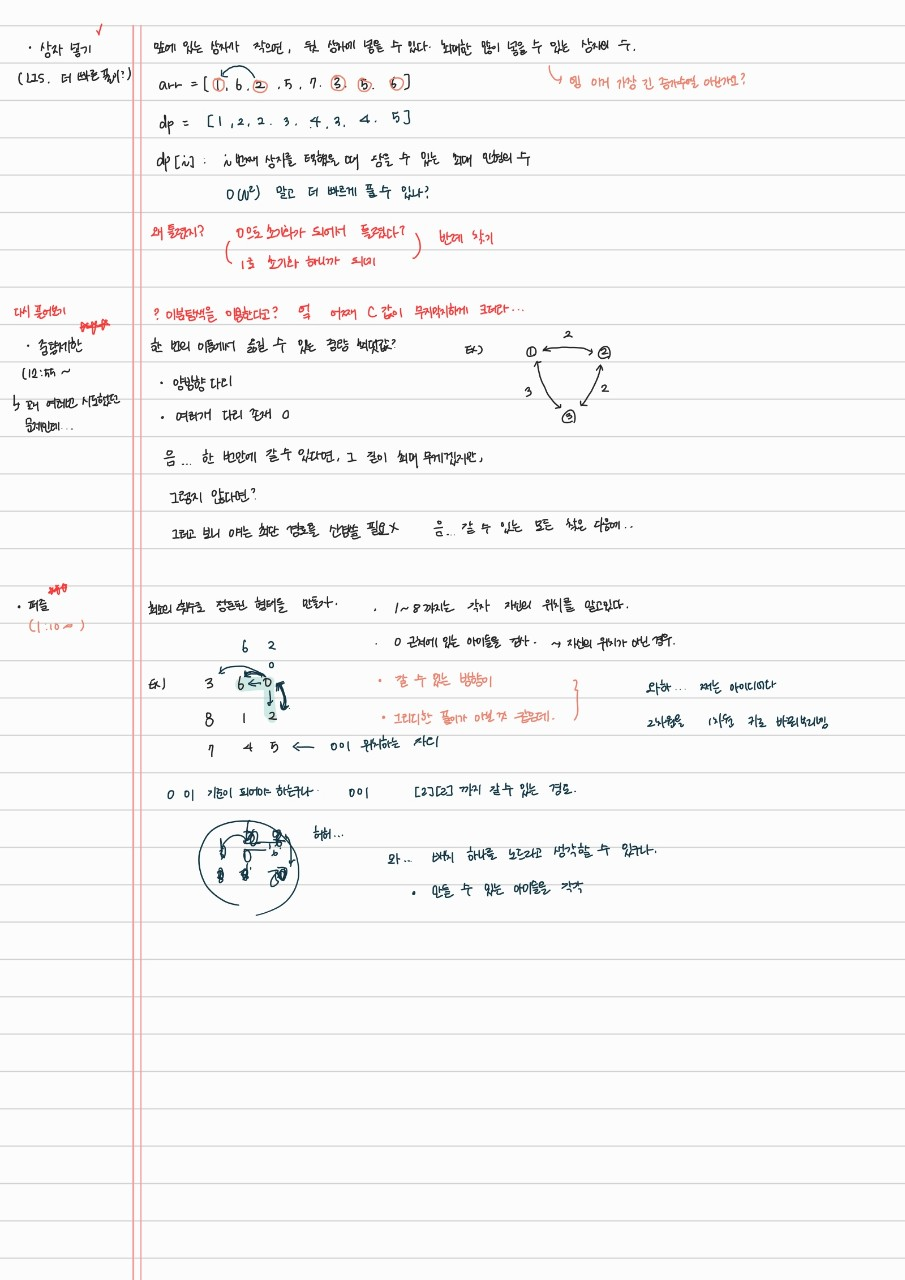 · 상자 넣기
(LIS. 더 빠른 풀이?)
앞에 있는 상자가 작으면, 뒷 상자에 넣을 수 있다. 최대한 많이 넣을 수 있는 상자의 수.
arr = [1, 6, 2, 5, 7, 3, 5, 6]
엥 이거 가장 긴 증가수열 아닌가요?
dp = [1, 2, 2. 3. 4. 3. 4. 5]
dp[i] : i번째 상자를 택했을 때 담을 수 있는 최대 인형의 수
O(N²) 말고 더 빠르게 풀 수 있나?
왜 틀렸지?
0으로 초기화가 되어서 틀렸다?
1로 초기화 하니까 되네
반례 찾기
다시 풀어보기
· 중량제한
(12:55 ~
↳ 꽤 여러번 시도했던
문제인데...
? 이분탐색을 이용한다고? 엌 어쩐지 C 값이 무지막지하게 크더라...
한 번의 이동에서 옮길 수 있는 중량 최댓값?
Ex)
① ② 2
3 2
③
· 양방향 다리
· 여러개 다리 존재 O
음... 한 번만에 갈 수 있다면, 그 길이 최대 무게겠지만,
그렇지 않다면?
그리고 보니 얘는 최단 경로를 산답할 필요X
음... 갈 수 있는 모든 착은 다음에..
· 퍼즐
(1:10 ~ )
최소의 횟수로 정돈된 형태를 만들자.
· 1~8까지는 각자 자신의 위치를 알고있다.
6 2
· 0 근처에 있는 아이들을 검사. ~> 자신의 위치가 아닌 경우.
0
Ex) 3 6 ← 0
· 갈 수 있는 방향이
와하... 쩌는 아이디어다
8 1 2
· 그리디한 풀이가 아닐 것 같은데.
2차원을 1차원 키로 바꿔버리넹
7 4 5 ← 0이 위치하는 자리
0 이 기준이 되어야 하는구나 0이 [2][2] 까지 갈 수 있는 경로.
허허...
와... 배치 하나를 노드라고 생각할 수 있구나.
· 만들 수 있는 아이들을 각각